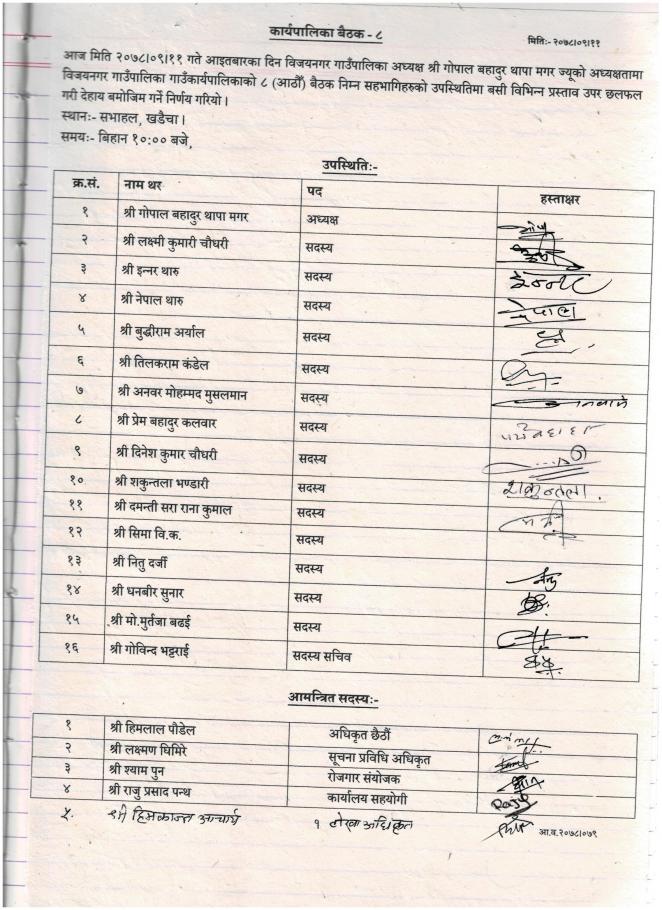 कार्यपालिका बैठक - ८
मितिः- २०७८।०९।११
आज मिति २०७८।०९।११ गते आइतबारका दिन विजयनगर गाउँपालिका अध्यक्ष श्री गोपाल बहादुर थापा मगर ज्यूको अध्यक्षतामा
विजयनगर गाउँपालिका गाउँकार्यपालिकाको ८ (आठौँ) बैठक निम्न सहभागिहरुको उपस्थितिमा बसी विभिन्न प्रस्ताव उपर छलफल
गरी देहाय बमोजिम गर्ने निर्णय गरियो ।
स्थानः- सभाहल, खडैचा ।
समयः- बिहान १०:०० बजे,
उपस्थितिः-
क्र.सं. नाम थर पद हस्ताक्षर
१ श्री गोपाल बहादुर थापा मगर अध्यक्ष
२ श्री लक्ष्मी कुमारी चौधरी सदस्य
३ श्री इन्नर थारु सदस्य इन्नर
४ श्री नेपाल थारु सदस्य नेपाल
५ श्री बुद्धीराम अर्याल सदस्य
६ श्री तिलकराम कंडेल सदस्य
७ श्री अनवर मोहम्मद मुसलमान सदस्य
८ श्री प्रेम बहादुर कलवार सदस्य
९ श्री दिनेश कुमार चौधरी सदस्य
१० श्री शकुन्तला भण्डारी सदस्य शकुन्तला .
११ श्री दमन्ती सरा राना कुमाल सदस्य
१२ श्री सिमा वि.क. सदस्य
१३ श्री नितु दर्जी सदस्य
१४ श्री धनबीर सुनार सदस्य
१५ श्री मो.मुर्तजा बढई सदस्य
१६ श्री गोविन्द भट्टराई सदस्य सचिव
आमन्त्रित सदस्यः-
१ श्री हिमलाल पौडेल अधिकृत छैठौं
२ श्री लक्ष्मण घिमिरे सूचना प्रविधि अधिकृत
३ श्री श्याम पुन रोजगार संयोजक
४ श्री राजु प्रसाद पन्थ कार्यालय सहयोगी Raju
५. श्री हिमकान्त आचार्य लेखा अधिकृत
आ.व.२०७८।०७९